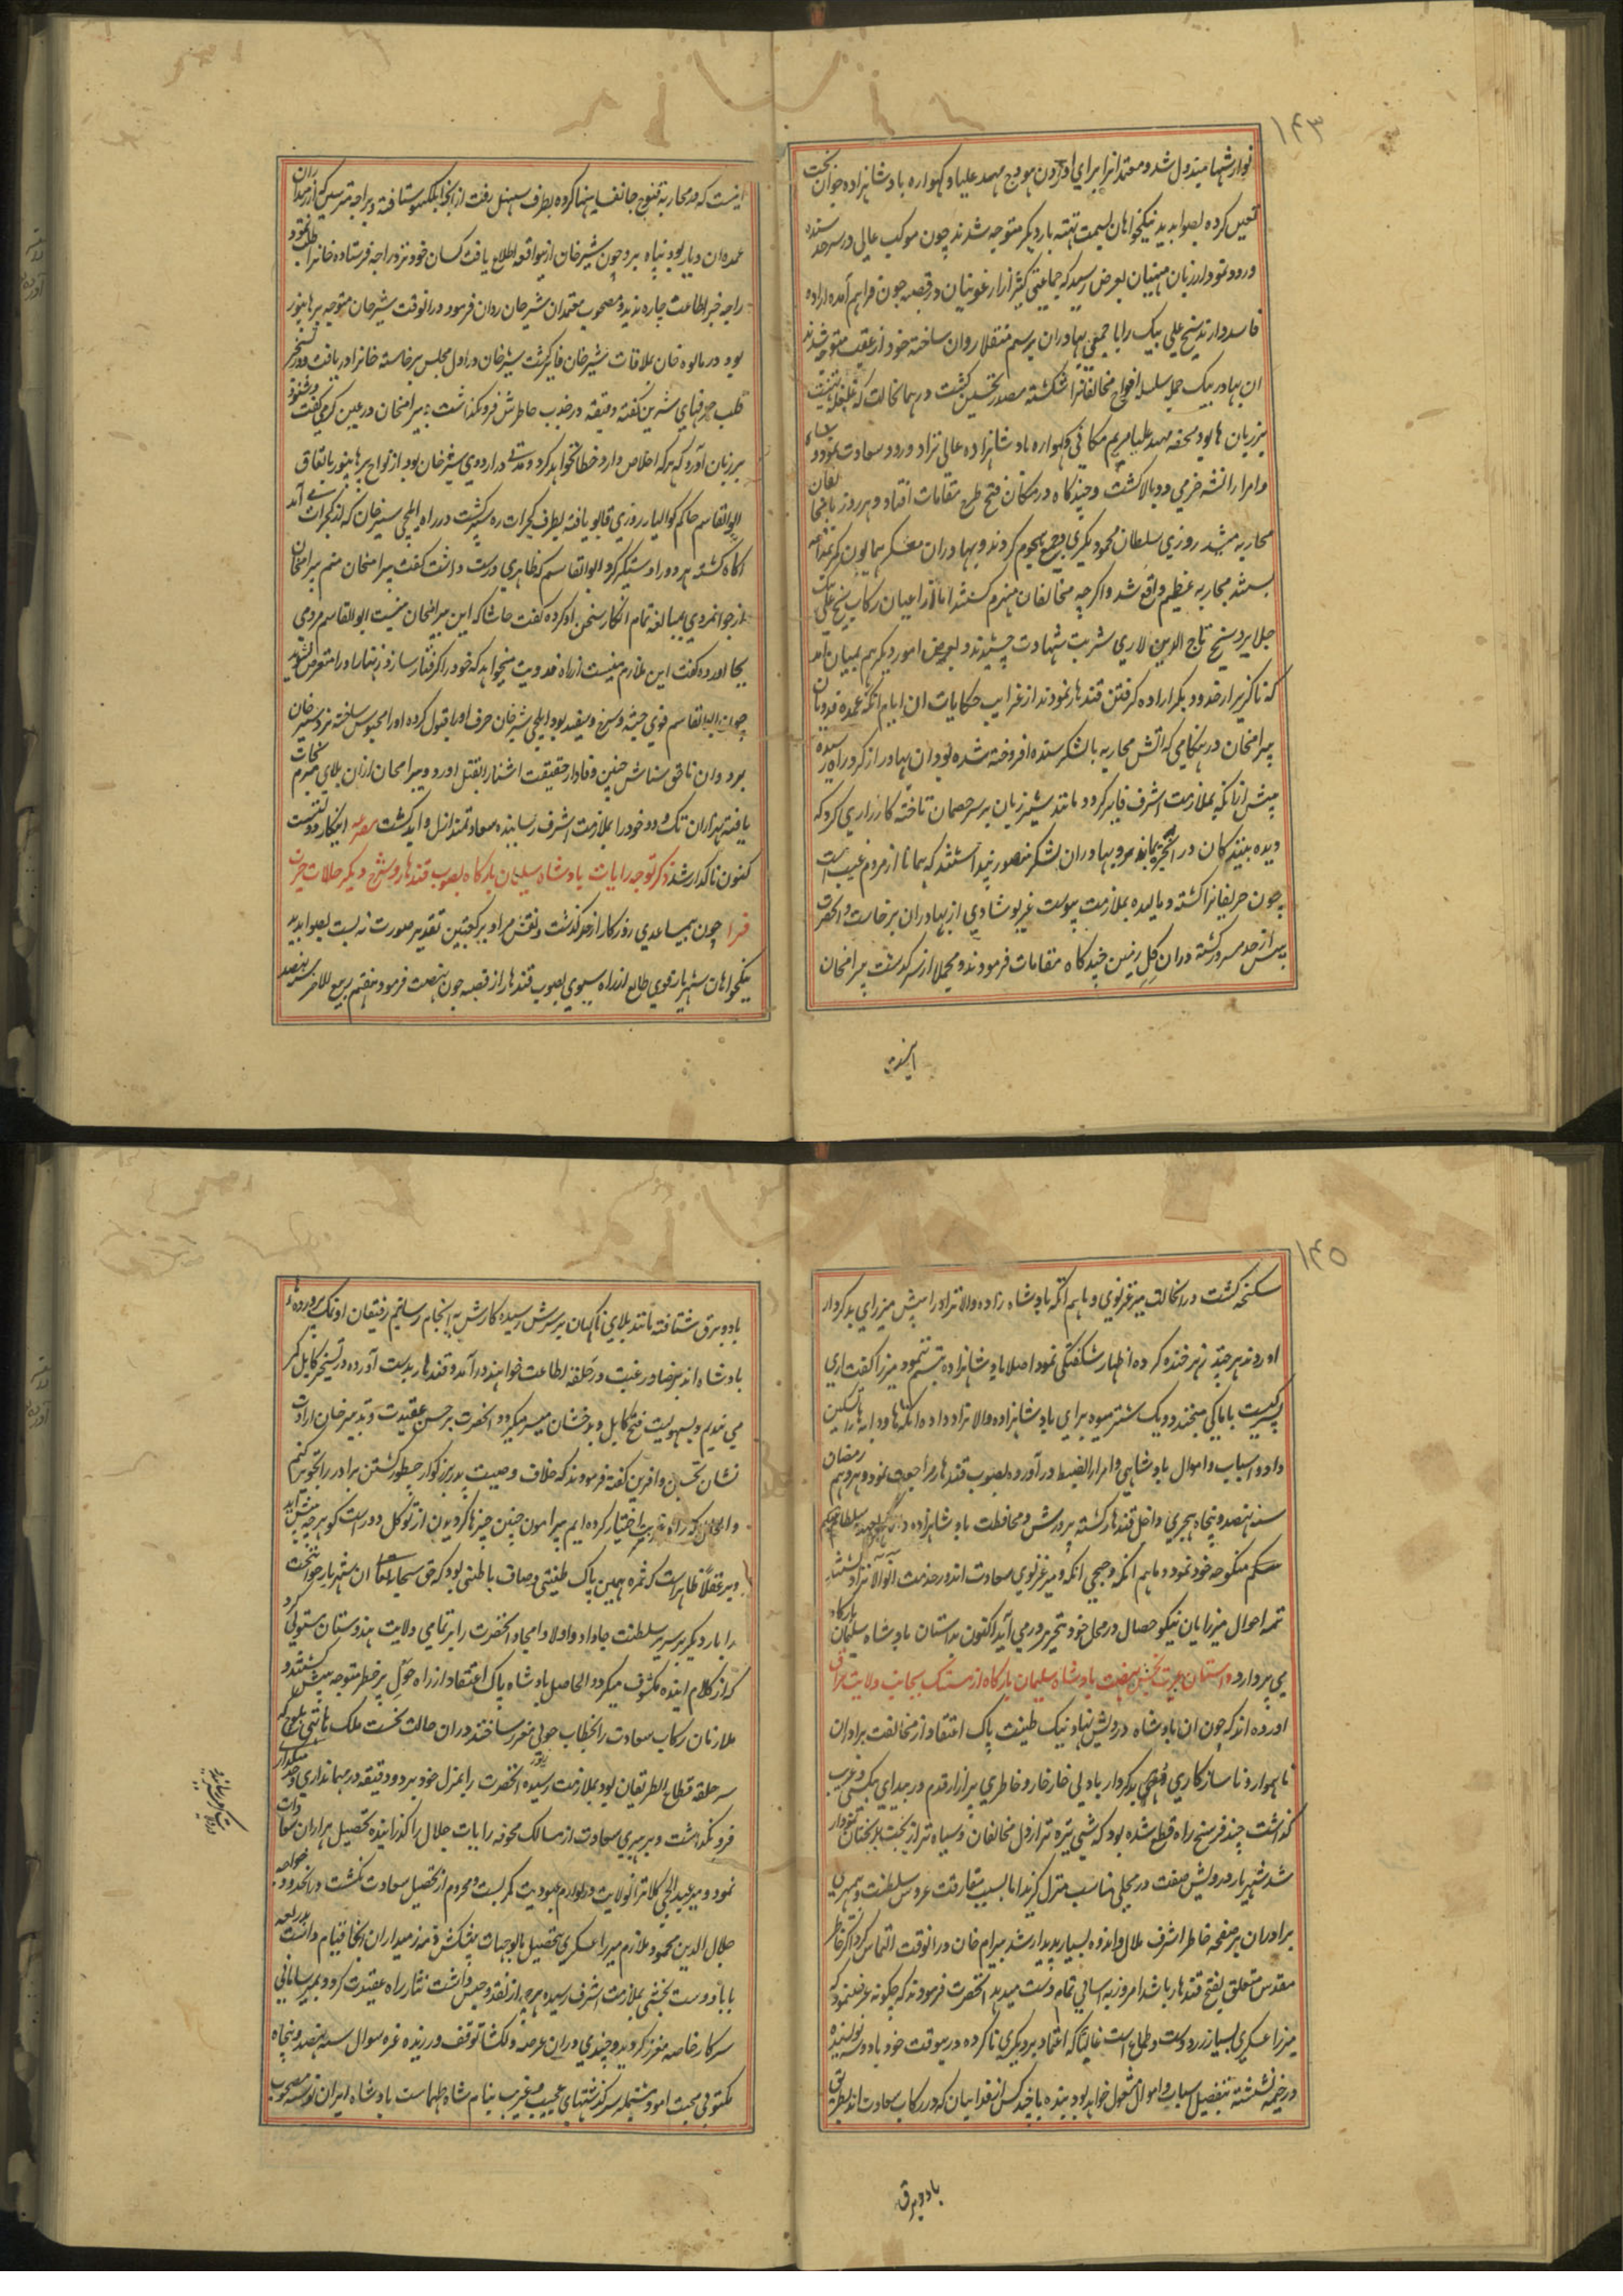 ۱۴۳
نوازشها مبذول شد و معتمدانرا برای آوردن هودج مهد علیا و گهواره بادشاهزاده جوان بخت
تعین کرده بصوابدید نیکخواهان بسمت تته بار دیکر متوجه شدند چون موکب عالی در سرحد سنده
ورود نمود از زبان منهیان بعرض رسید که جماعتی کثیر از ارغونیان در قصبه جون فراهم آمده اراده
فاسد دارند شیخ علی بیک را با جمعی بهادران برسم منقلا روان ساخته خود از عقب متوجه شدند
ان بهادر بیک حمله سلسله افواج مخالفانرا شکسته مصدر تحسین کشت در همانحالت که غلغله تهنیت
بر زبان ها بود محفه مهد علیا مریم مکانی و گهواره بادشاهزاده عالی نژاد ورود سعادت نمود
و امرا را نشه خرمی دوبالا کشت و چندکاه در مکان فتح طرح مقامات افتاد و هر روز با مخالفان
محاربه میشد روزی سلطان محمود بکری و جمعی هجوم کردند و بهادران معسکر همایون کمر مدافعه
بستند محاربه عظیم واقع شد و اکرچه مخالفان منهزم کشتند اما از اعیان رکاب شیخ علی بیک
جلایر و شیخ تاج الدین لاری شربت شهادت چشیدند و بعرض امور دیکر هم بمیان آمد
که ناکزیر از خدود بکر اراده کرفتن قندهار نمودند از غرایب حکایات ان ایام انکه عمده فدویان
بیرامخان در هنکامی که اتش محاربه با لشکر سنده افروخته شده بود ان بهادر از کرد راه رسیده
پیش از انکه بملازمت اشرف فایز کردد مانند شیر ژیان بر سر خصمان تاخته کارزاری کرد که
دیده بینندکان در انحیره بماند و بهادران لشکر منصور پنداشتند که همانا از مردم غیب است
چون حریفانرا کشته و مالیده بملازمت پیوست غریو شادی از بهادران برخاست و انحضرت
بیش از حد مسرور کشته دران کل زمین چندکاه مقامات فرمودند و مجملا از سرکذشت بیرامخان
اینست
اینست که در محاربه قنوج جانفشانیها کرده بطرف سنبهل رفت از انجا بلکهنو شتافته و براجه مترسین که از زمینداران
عمده ان دیار بود پناه برد چون شیرخان ازینواقعه اطلاع یافت کسان خود نزد راجه فرستاده خانرا طلب نمود
راجه خبر اطاعت چاره ندید و مصحوب معتمدان شیرخان روان فرمود درانوقت شیرخان متوجه برهانپور
بود در مالوه خان بملاقات شیرخان فایز کشت شیرخان در اول مجلس برخاسته خانرا دریافت و در تسخیر
قلب حرفهای شیرین کفته دقیقه در جذب خاطرش فرو نکذاشت بیرامخان در عین کرمی کفت و شنود
بر زبان آورد که هر که اخلاص دارد خطا نخواهد کرد و مدتی در اردوی شیرخان بود از نواح برهانپور باتفاق
ابوالقاسم حاکم کوالیار روزی قابو یافته بطرف کجرات ره سپر کشت در راه ایلچی شیرخان که از کجرات می آمد
اکاه کشته هر دو را دستکیر کرد ابوالقاسم که ظاهری درست داشت کفت بیرامخان منم بیرامخان
از جوانمردی بمبالغه تمام انکار سخن او کرده کفت حاشا که این بیرامخان نیست ابوالقاسم مردی
بجا اورده کفت این ملازم منست از راه فدویت میخواهد که خود را کرفتار سازد زنهار او را متعرض نشوید
چون ابوالقاسم قوی جثه و سرخ و سفید بود ایلچی شیرخان حرف او را قبول کرده او را محبوس ساخته نزد شیرخان
برد و ان ناحق شناس چنین وفادار حقیقت اشنا را بقتل اورد و بیرامخان ازان بلای مبرم نجات
یافته بهزاران تک و دو خود را بملازمت اشرف رسانیده سعادتمند ازل و ابد کشت مصرعه اینکار دولتست
کنون تا کرا رسد ذکر توجه رایات بادشاه سلیمان بارکاه بصوب قندهار و شرح دیکر حالات حیرت
فزا چون بیمساعدی روزکار از حد کذشت و نقش مراد بر کعبتین تقدیر صورت نه بست بصوابدید
نیکخواهان شهریار قوی طالع از راه سیوی بصوب قندهار از قصبه جون نهضت فرمود هفتم ربیع الاخر سنه نهصد
۱۴۵
سکنجه کشت درانحالت میر غزنوی و ماهم انکه بادشاه زاده والانژاد را پیش میرزای بدکردار
اوردند هرچند زهرخنده کرده اظهار شکفتکی نمود اصلا بادشاهزاده تبسم ننمود میرزا کفت اری
پسر کیست با ما کی میخندد و یک شتر میوه برای بادشاهزاده والانژاد داده انکه ها و دایه ها را تسکین
داد و اسباب و اموال بادشاهی و امرا را بضبط در آورده بصوب قندهار مراجعت نمود و هژدهم رمضان
سنه نهصد و پنجاه هجری داخل قندهار کشته پرورش و محافظت بادشاهزاده والا کهر بعهده سلطانم بیکم
بیکم منکوحه خود نمود و ماهم انکه و جیجی انکه و میر غزنوی سعادت اندوز خدمت ان والانژاد شدند
تمه احوال میرزایان نیکوخصال در محل خود بتحریر در می آید اکنون بداستان بادشاه سلیمان بارکاه
می پردازد داستان عبرت بخش نهضت بادشاه سلیمان بارکاه از مستنک بجانب ولایت عراق
اورده اند که چون ان بادشاه درویش نهاد نیک طینت پاک اعتقاد از مخالفت برادران
ناهموار و ناسازکاری بدکردار با دلی خار خار و خاطری پر آزار قدم در بیدای بیکسی و غربت
کذاشت چند فرسخ راه قطع شده بود که شبی تیره تر از دل مخالفان و سیاه تر از بخت بدبختان نمودار
شد شهریار درویش صفت در محلی مناسب منزل کزید اما بسبب مفارقت عروس سلطنت و بیمهری
برادران بر صفحه خاطر اشرف ملال و اندوه بسیار پدیدار شد بیرام خان درانوقت التماس کرد اکر خاطر
مقدس متعلق بفتح قندهار باشد امروز به آسانی تمام دست میدهد انحضرت فرمودند که چکونه عرض نمود که
میرزا عسکری بسیار زر دوست و طماع است غالبا که اعتماد بر دیکری ناکرده درینوقت خود با دو سه نویسنده
در خیمه نشسته بتفصیل اسباب و اموال مشغول خواهد بود بنده با چند کس از فدائیان که در رکاب سعادت اند بطریق
باد و برق
باد و برق شتافته مانند بلای ناکهان بر سرش رسیده کارش به انجام رسانیم رفیقان او نمک پرورده
بادشاه اند برضا و رغبت در حلقه اطاعت خواهند درآمد و قندهار بدست آورده در تسخیر کابل کمر
می بندیم و بسهولیت فتح کابل و بدخشان میسر میکردد انحضرت بر حسن عقیدت و تدبیر خان ارادت
نشان تحسین و آفرین کفته فرمودند که خلاف وصیت پدر بزرکوار چطور کشتن برادر را تجویز کنم
و اکنون که راه غربت اختیار کرده ایم پیرامون چنین چیزها کردیدن از توکل دور است کو هر چه پیش آید
و بر عقلا ظاهر است که ثمره همین پاک طینتی و صاف باطنی بود که حق سبحانه تعالی ان شهریار جوانبخت
را بار دیکر بر سریر سلطنت جا داد و اولاد امجاد انحضرت را بر تمامی ولایت هندوستان مستولی کرد
که از کلام اینده مکشوف میکردد الحاصل بادشاه پاک اعتقاد از راه چول پر خطر متوجه پیش کشتند و
ملازمان رکاب سعادت را بخطاب چولی مفرز ساختند دران حالت نخست ملک هاتی بلوچ که
سر حلقه قطاع الطریقان بود بملازمت رسیده انحضرت را بمنزل خود برد و دقیقه در مهمانداری و خدمتکذاری
فرو نکذاشت و برهبری سعادت از مسالک مخوفه رایات جلال را کذرانیده تحصیل هزاران سعادات
نمود و میر عبدالحی کلانتر انولایت در لوازم عبودیت کمر بست و محروم از تحصیل سعادت نکشت و درانحدود خواجه
جلال الدین محمود ملازم میرزا عسکری بتحصیل مالوجهات پیشکش و ذمه زمینداران انجا قیام داشت بدریعه
بابا دوست بخشی بملازمت اشرف رسیده هر چه از نقد و جنس داشت نثار راه عقیدت کرد و بمیر سامانی
سرکار خاصه مفرز کردید و چندی دران عرصه دلکشا توقف ورزیده غره شوال سنه نهصد و پنجاه
مکتوبی محبت امود مشتمله سرکذشتهای عجیب و غریب بنام شاه طهماست بادشاه ایران نوشته مصحوب